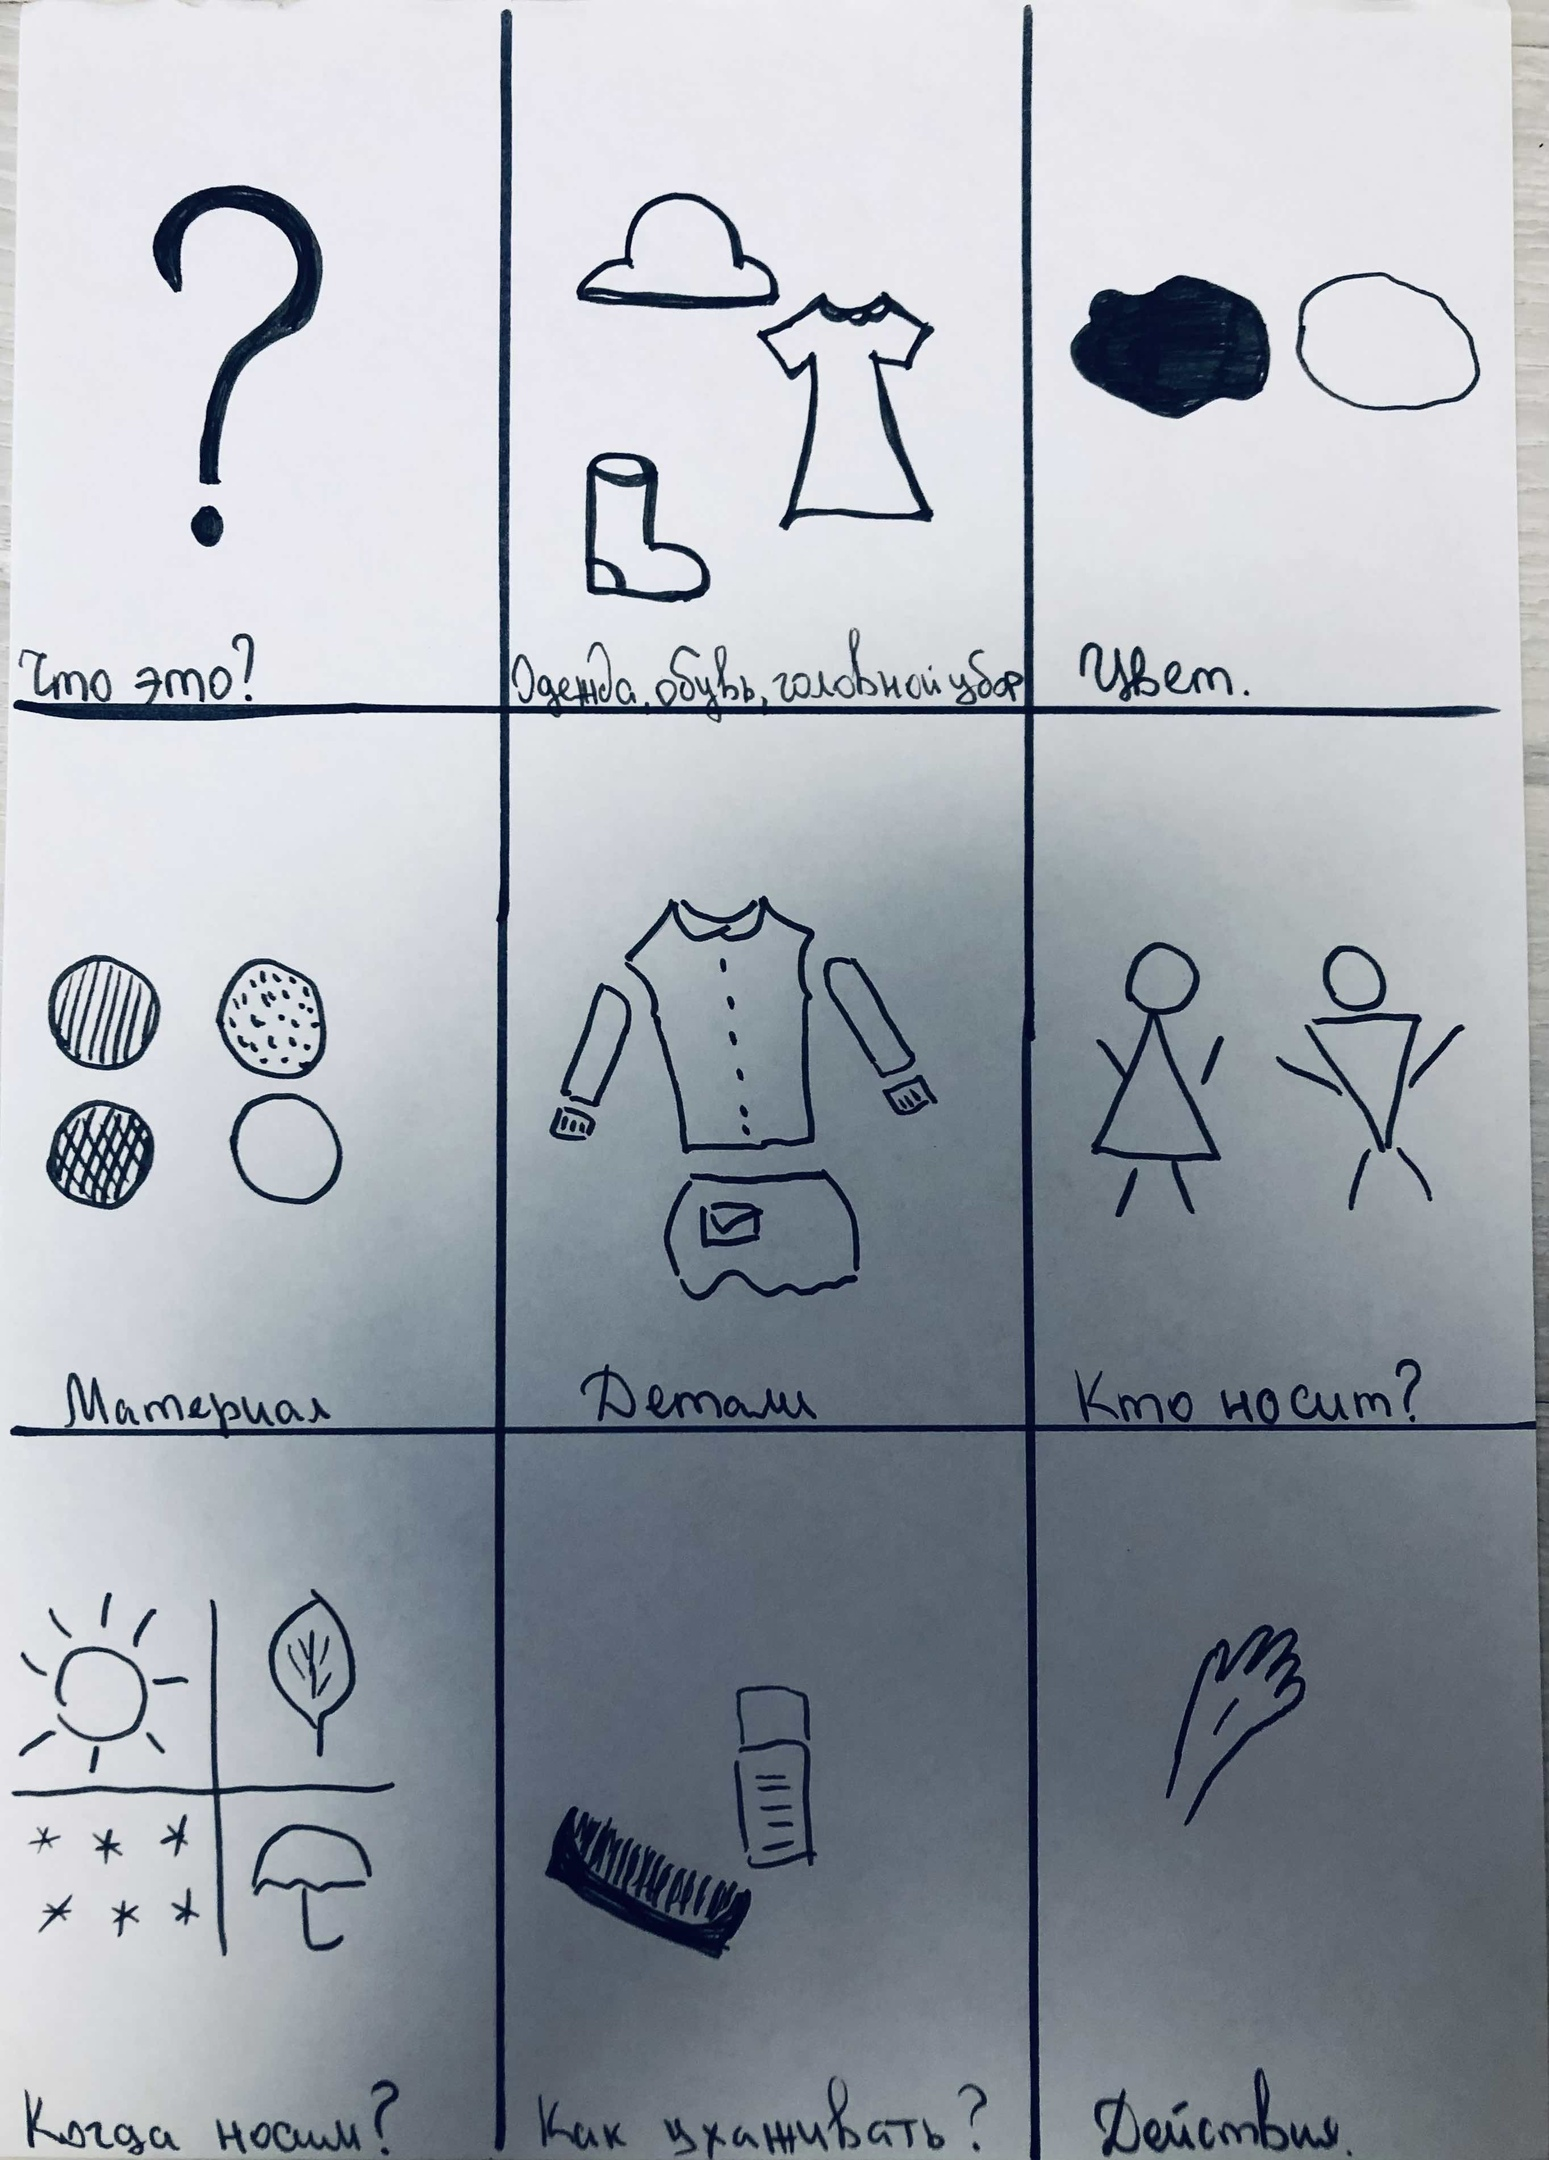 Что это?
Одежда, обувь, головной убор
Цвет.
Материал
Детали
Кто носит?
Когда носим?
Как ухаживать?
Действия.